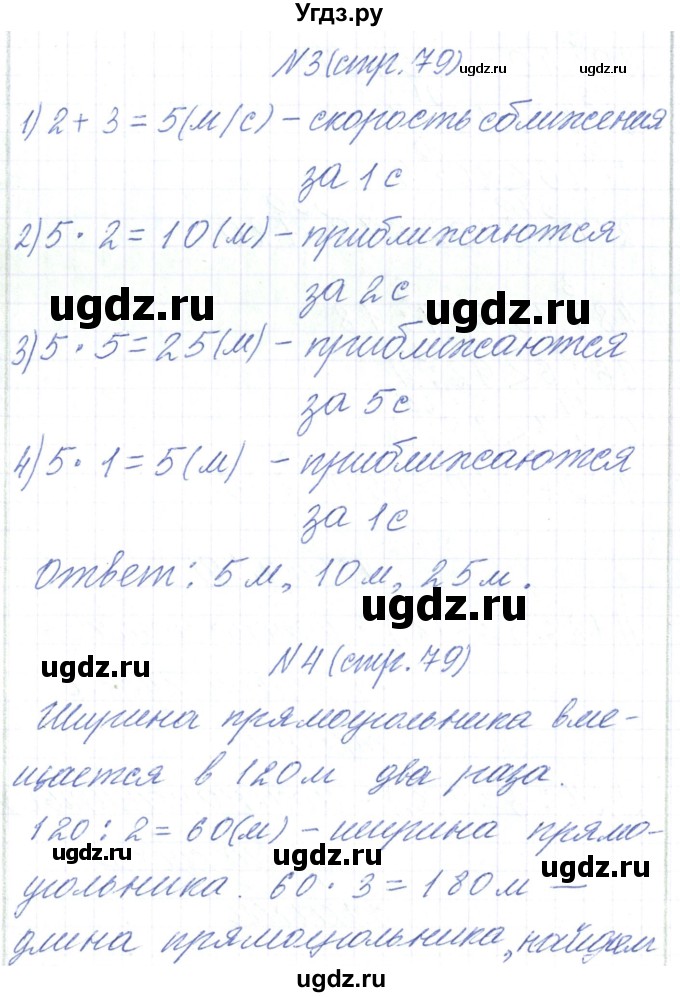 Угдз.ру
N3 (стр. 79) ugdz.ru ugdz.ru
1) 2 + 3 = 5 (м/с) – скорость сближения
за 1 с
2) 5 · 2 = 10 (м) – приближаются
за 2 с
ugdz.ru ugdz.ru
3) 5 · 5 = 25 (м) – приближаются
за 5 с
4) 5 · 1 = 5 (м) – приближаются
за 1 с
Ответ: 5 м, 10 м, 25 м.
ugdz.ru
ugdz.ru N4 (стр. 79)
Ширина прямоугольника вме-
щается в 120 м два раза.
120 : 2 = 60 (м) – ширина прямо-
ugdz.ru ugdz.ru
угольника. 60 · 3 = 180 м –
длина прямоугольника, найдем
ugdz.ru